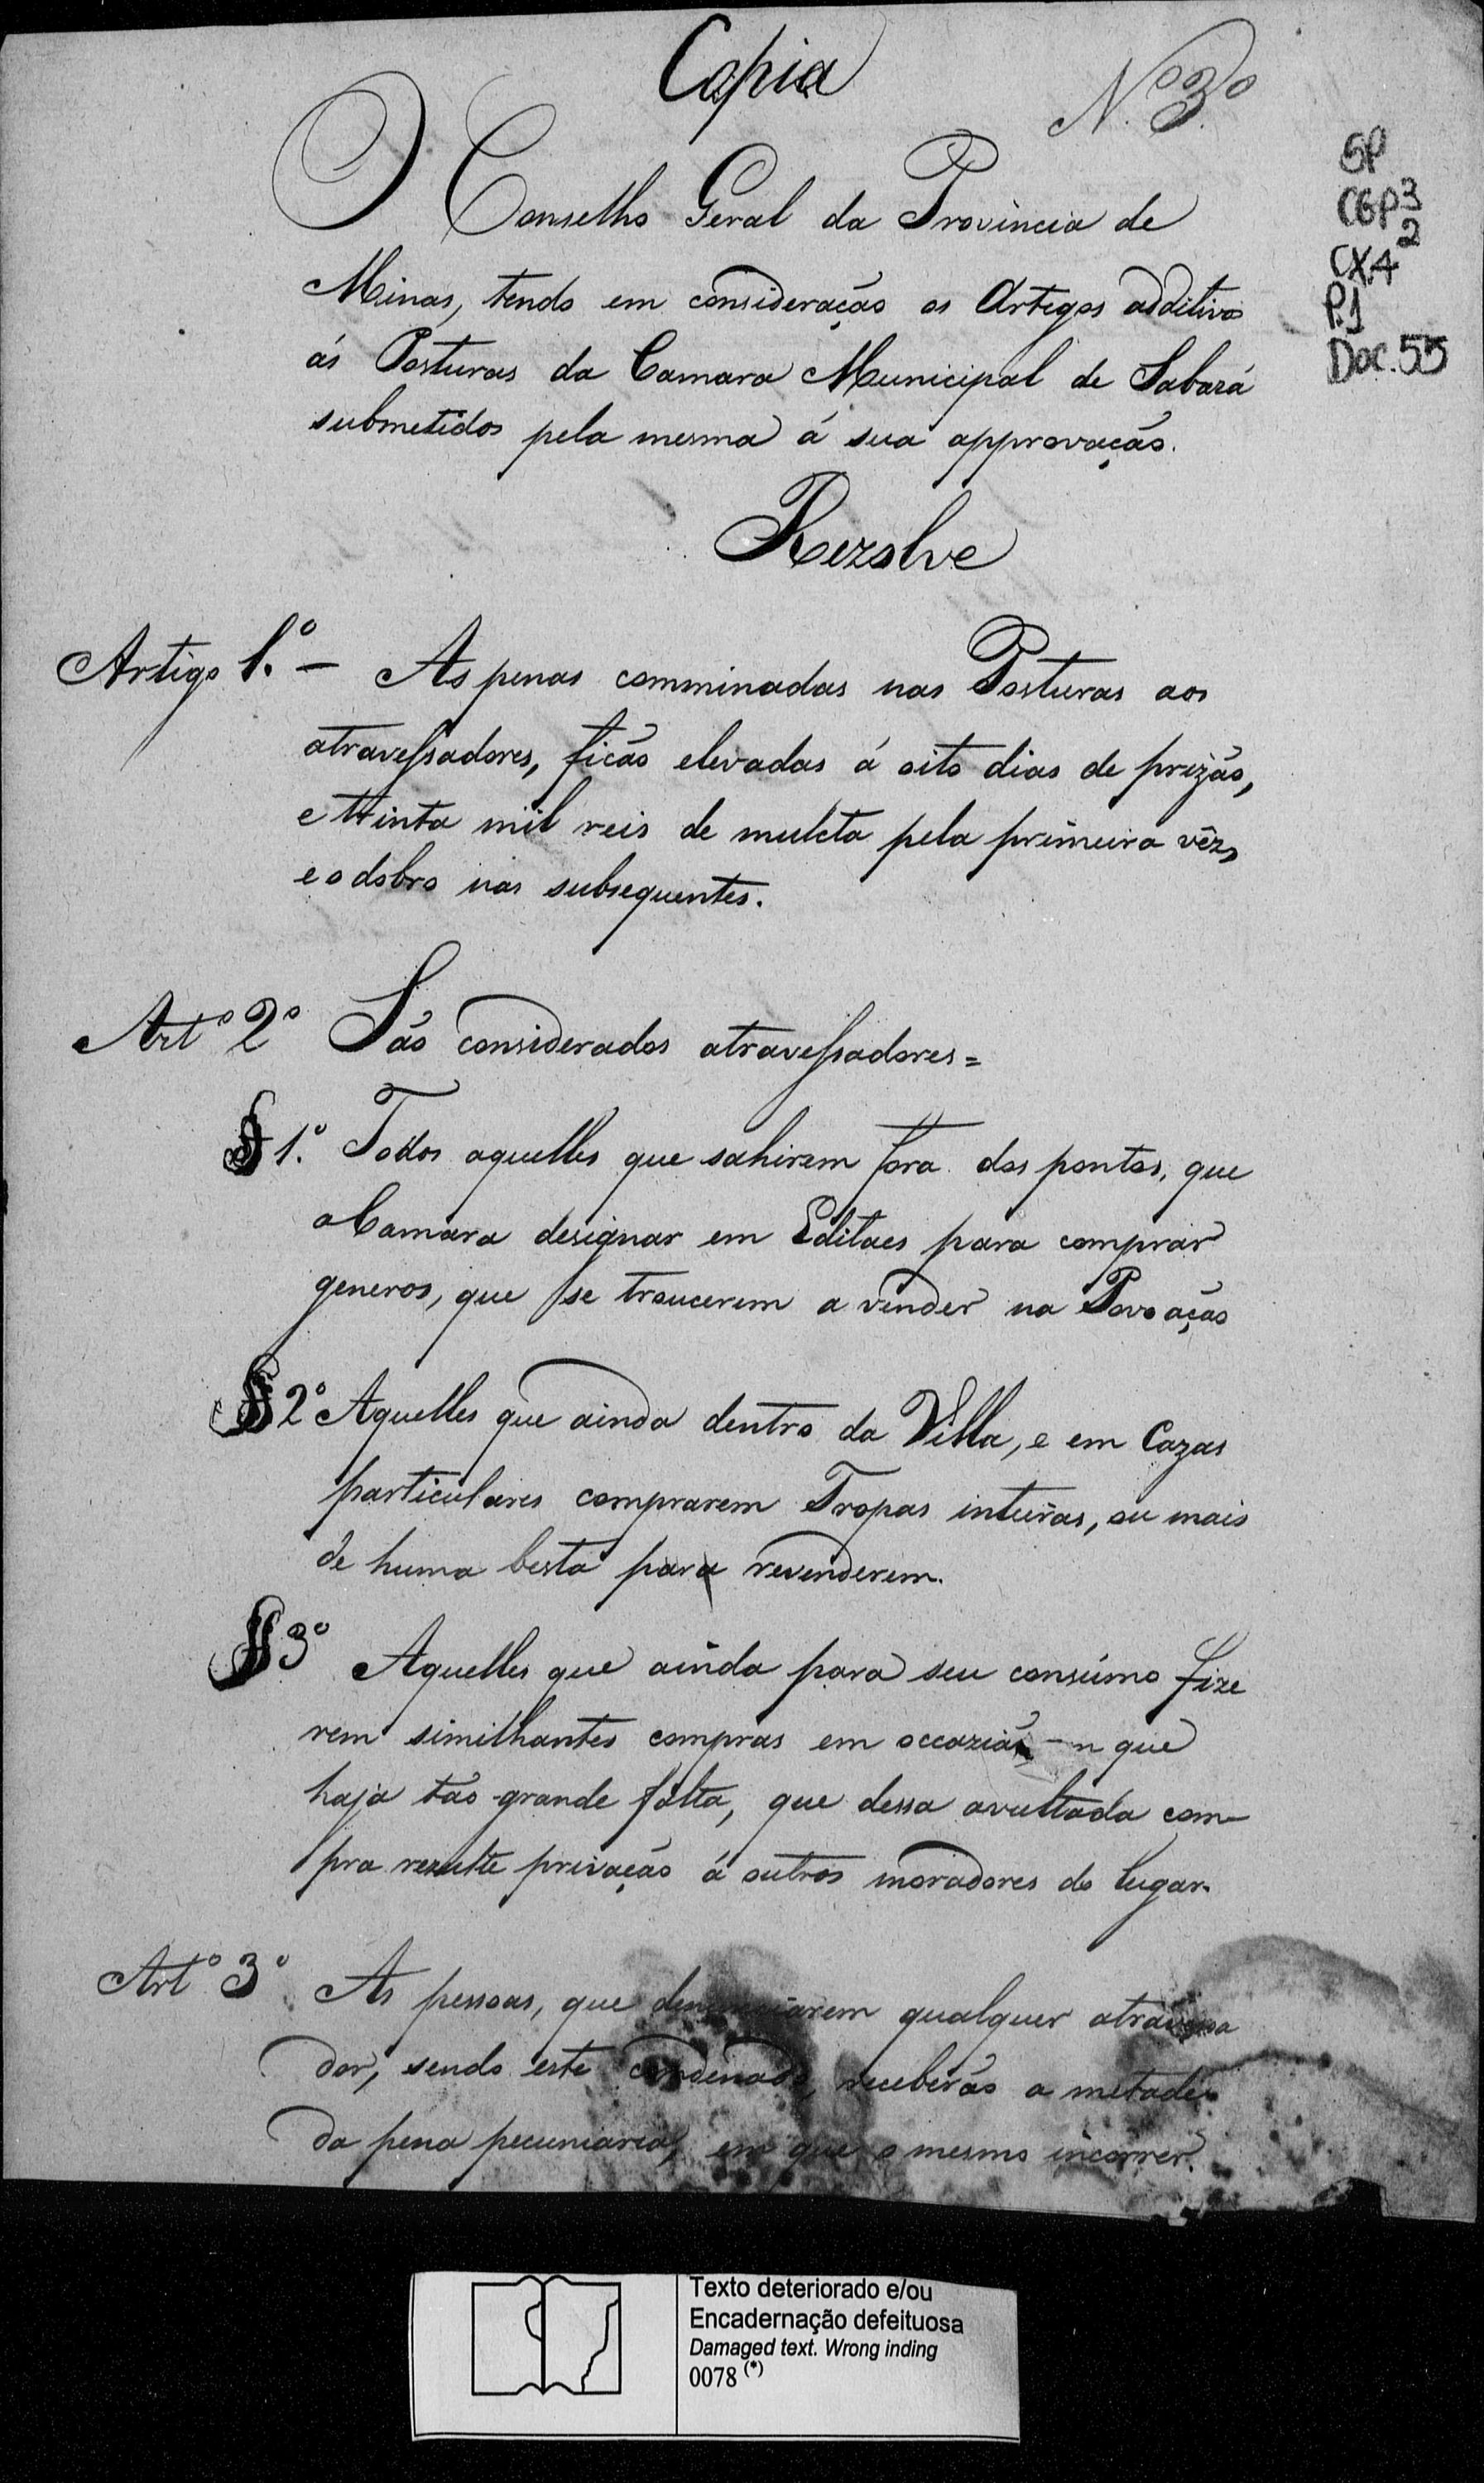 Copia
N.º 3.º
SP
CGP3
2
CX.4
P.1
Doc. 55
O Conselho Geral da Provincia de
Minas, tendo em consideração os Artigos additivos
ás Posturas da Camara Municipal de Sabará
submetidos pela mesma á sua approvação.
Rezolve
Artigo 1.º — As penas comminadas nas Posturas aos
atravessadores, ficão elevadas á oito dias de prizão,
e trinta mil reis de mulcta pela primeira vêz,
e o dobro nas subsequentes.
Artº 2º São considerados atravessadores =
§ 1.º Todos aquelles que sahirem fora dos pontos, que
a Camara designar em Editaes para comprar
generos, que se troucerem a vender na Povoação
§ 2º Aquelles que ainda dentro da Villa, e em Cazas
particulares comprarem Tropas inteiras, ou mais
de huma besta para revenderem.
§ 3º Aquelles que ainda para seu consúmo fize
rem similhantes compras em occazião que
haja tão grande falta, que dessa avultada com-
pra rezulte privação á outros moradores do lugar.
Artº 3º As pessoas, que denunciarem qualquer atravessa
dor, sendo este condenado, receberão a metade
da pena pecuniaria, em que o mesmo incorrer.
Texto deteriorado e/ou
Encadernação defeituosa
Damaged text. Wrong inding
0078 (*)